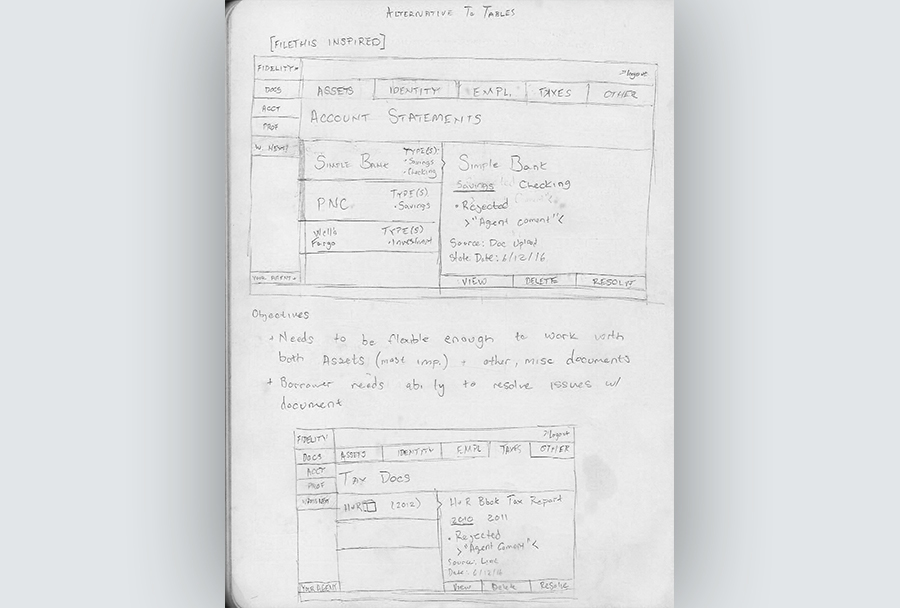 ALTERNATIVE TO TABLES
[FILETHIS INSPIRED]
FIDELITY
logout
DOCS
ASSETS IDENTITY EMPL. TAXES OTHER
ACCT
PROF
ACCOUNT STATEMENTS
SIMPLE BANK
TYPE(S):
• Savings
• Checking
PNC
TYPE(S)
• Savings
Wells
Fargo
TYPE(S)
Simple Bank
Savings Checking
• Rejected
>"Agent coment"<
Source: Doc Upload
State Date: 6/12/16
VIEW DELETE
YOUR AGENT
Objectives
• Needs to be flexible enough to work with
both Assets (most imp.) + other, misc documents
• Borrower needs ability to resolve issues w/
document
FIDELITY
logout
DOCS
ASSETS IDENTITY EMPL TAXES OTHER
ACCT
PROF
TAX DOCS
H+R (2012)
H+R Block Tax Report
2010 2011
• Rejected
>"Agent Coment"<
Date: 6/12/16
YOUR AGENT
View Delete Resolve